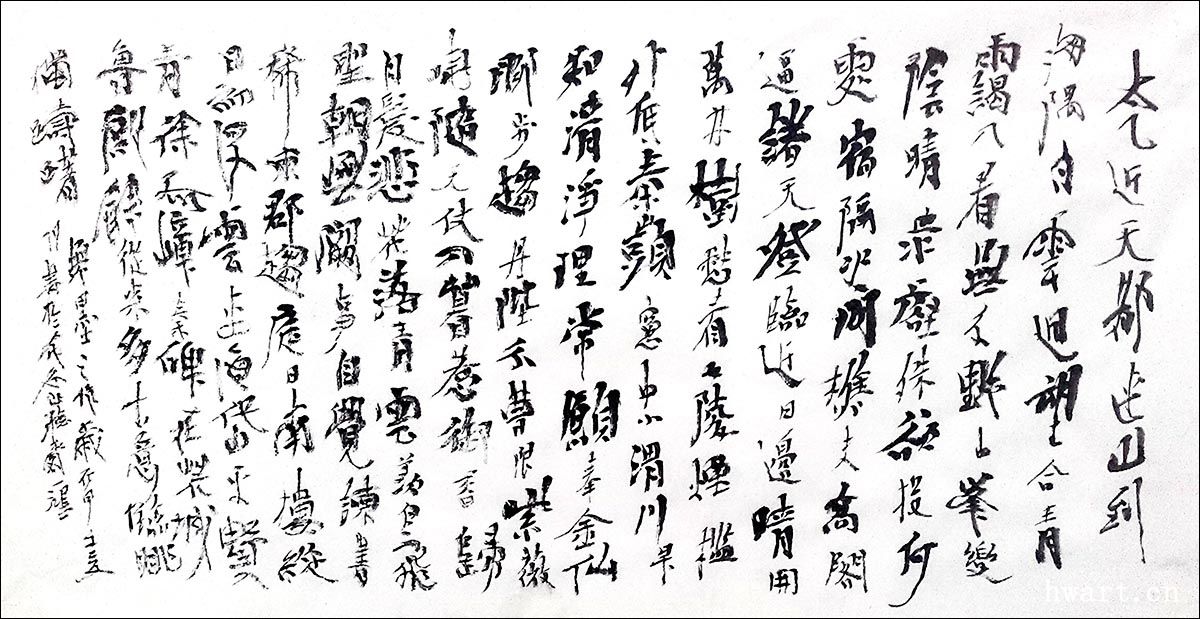 太乙近天都連山到
海隅白雲迴望合青
靄入看無分野中峯變
陰晴眾壑殊欲投何
處宿隔水問樵夫高閣
逼諸天登臨近日邊晴開
萬井樹愁看五陵煙檻
外低秦嶺窗中小渭川早
知清淨理常願奉金仙
聯步趨丹陛分曹限紫薇
曉隨天仗入暮惹御香歸
白髮悲花落青雲羨鳥飛
聖朝無闕事自覺諫書
稀東郡趨庭日南樓縱
目初浮雲連海岱平野入
青徐孤嶂秦碑在荒城
魯殿餘從來多古意臨眺
獨躊躇
hwart.cn